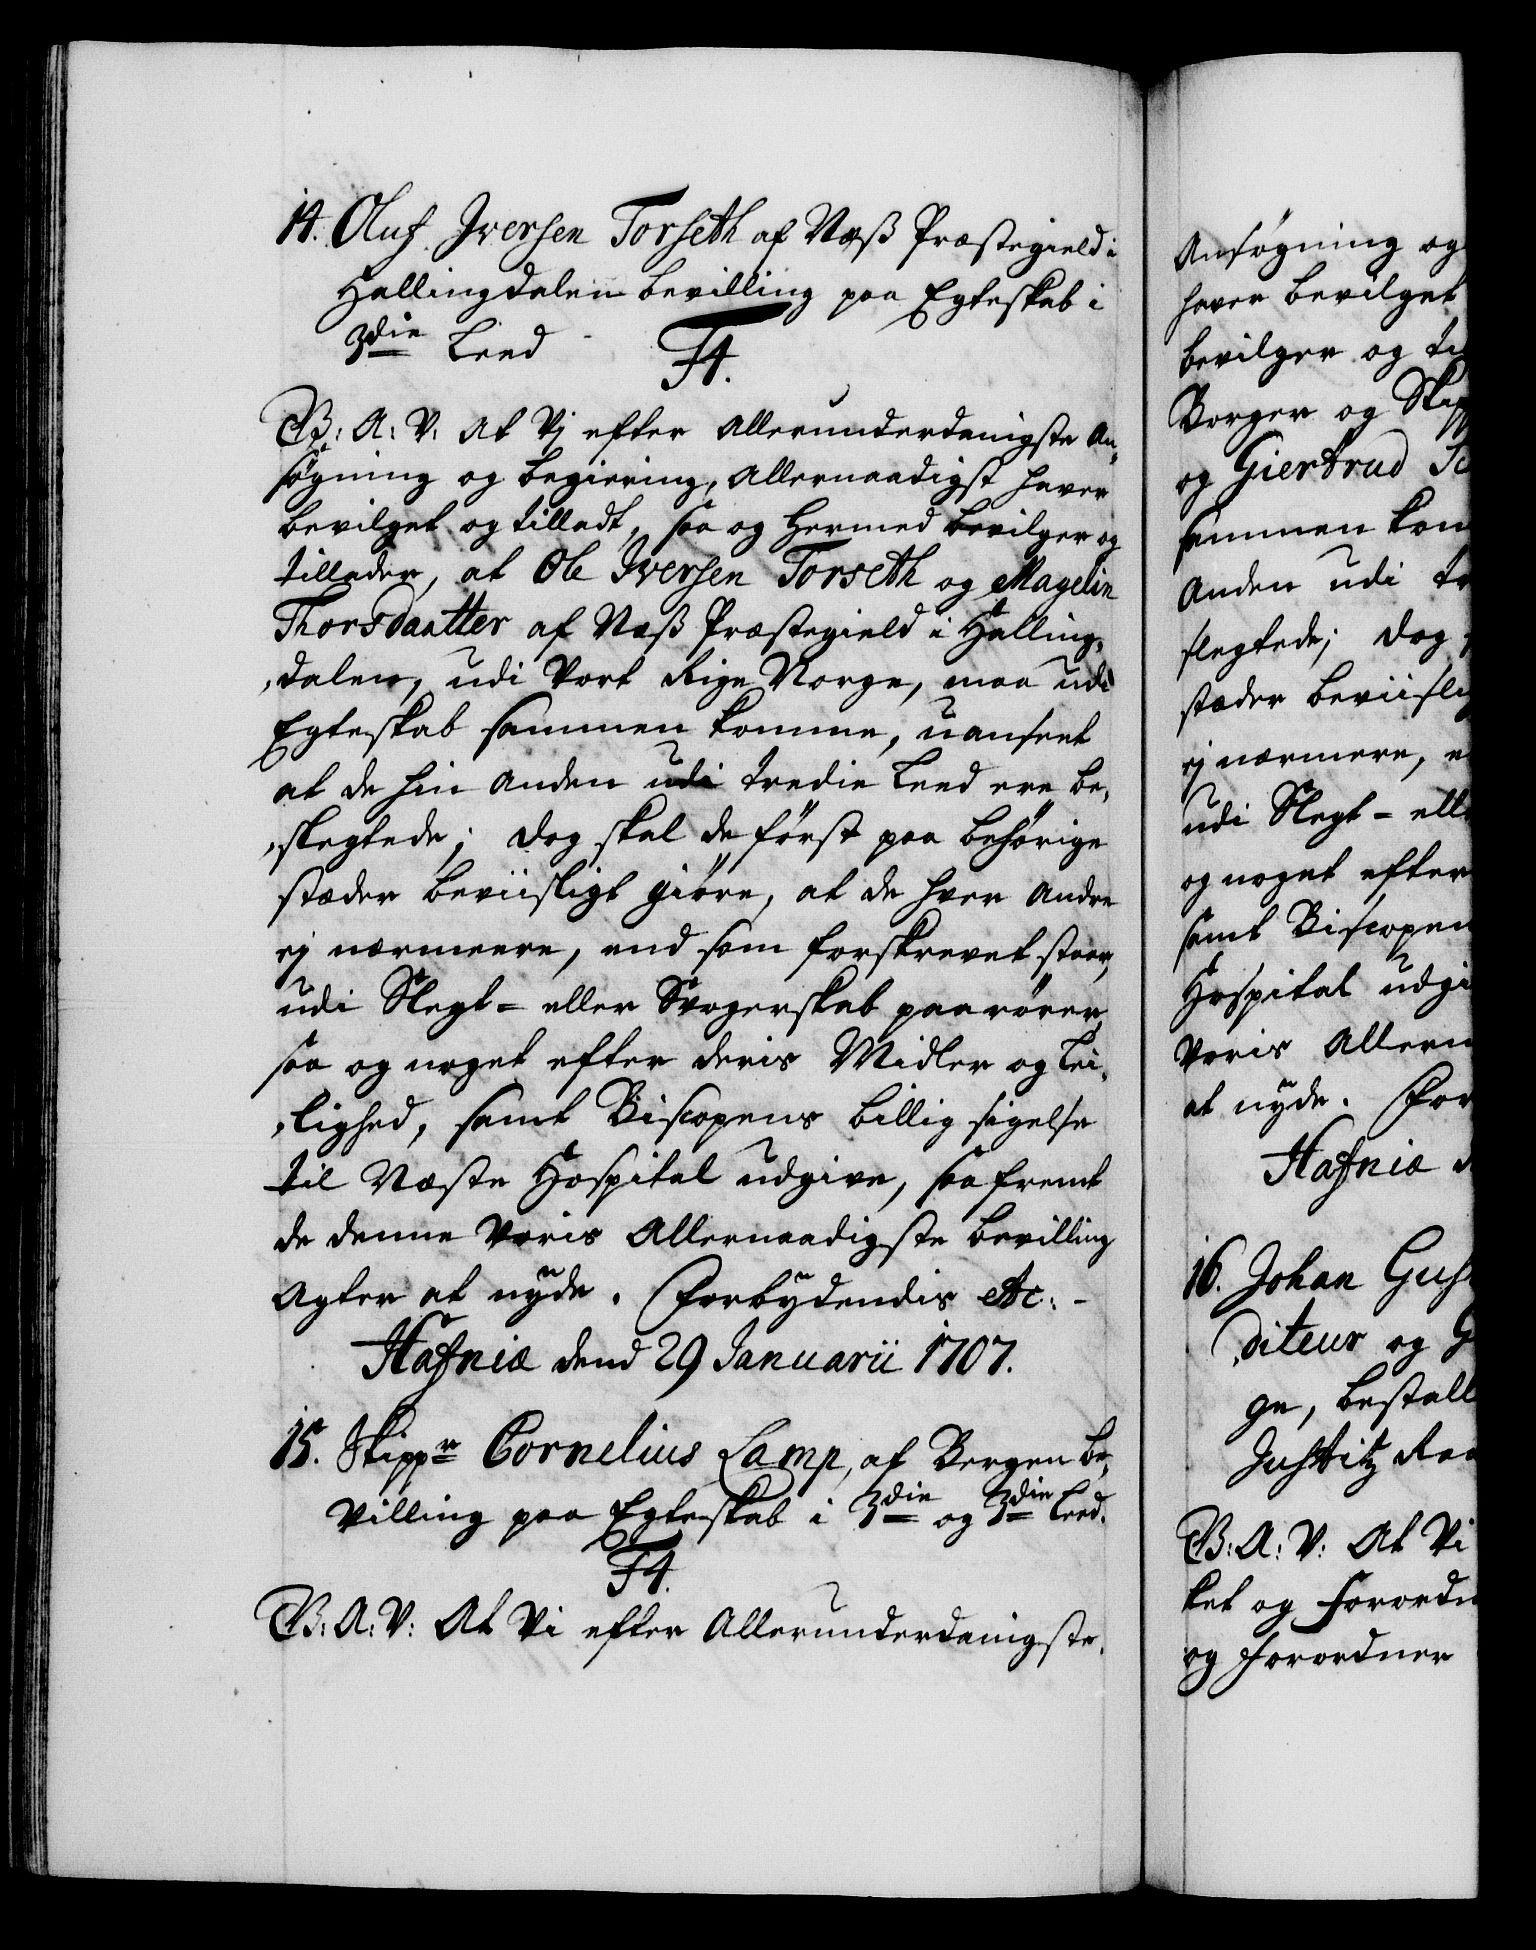 14. Oluf Iversen Torseth af Næss Præstegield i
Hallingdalen Bevilling paa Egteskab i
3die Leed
F4.
B: A: V: At Vj efter Allerunderdanigste An„
søgning og Begiering, Allernaadigst haver
bevilget og tilladt, saa og hermed bevilger og
tillader, at Ole Iversen Torseth og Magelin
Thorsdaatter af Næss Præstegield i Halling„
„dalen, udi Vort Rige Norge, maa udi
Egteskab sammen komme, uanseet
at de hin Anden udi tredie Leed ere be„
„slegtede; dog skal de først paa behørige
stæder beviisligt giøre, at de hver Andre
ej nærmeere, end som forskrevet staar,
udi Slegt- eller Svogerskab paarører,
saa og noget efter deris Midler og Lei„
„lighed, samt Biscopens billig sigelse
til Næste Hospital udgive, saafremt
de denne Voris Allernaadigste Bevilling
Agter at nyde. Forbydendis etc: -
Hafniæ dend 29 Januarii 1707.
15. Skippr Cornelius Lamp, af Bergen Be„
villing paa Egteskab i 3die og 3die Leed.
F4.
B: A: V: At Vi efter Allerunderdanigste.
Ansøgning og
haver bevilget
bevilger og
Borger og
og Giertrud
sammen kom
Anden udi
slegtede; dog
stæder beviislig
ej nærmere,
udi Slegt- elle
og noget efter
samt Biscopen
Hospital udgi
Voris Allern
at nyde. For
Hafniæ
16. Johan Gust
„diteur og
ge, bestall
Justitz Raa
B: A: V: At Vi
ket og forordn
og forordner